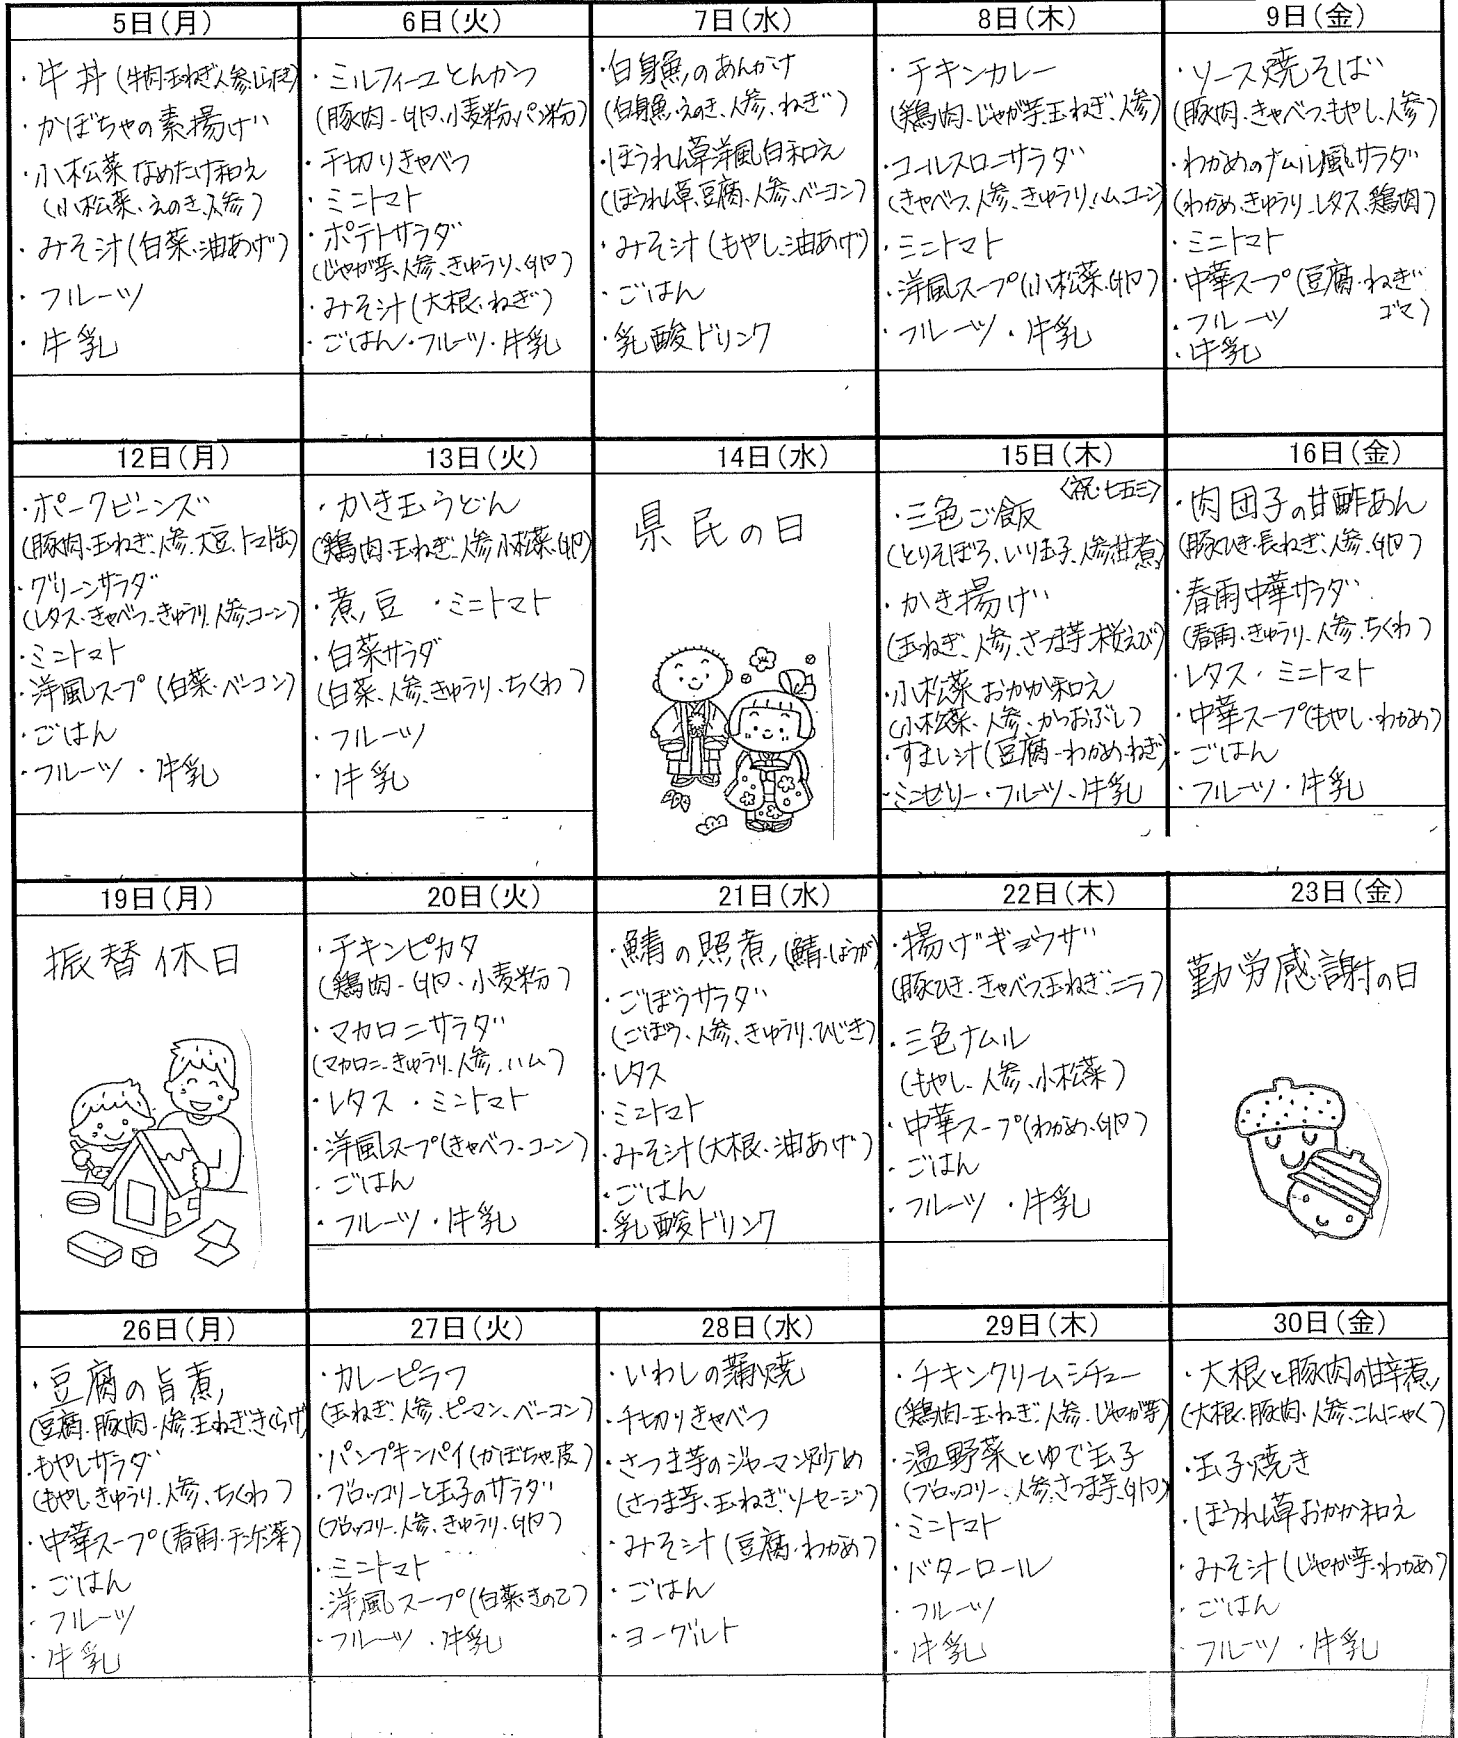 5日(月)
・牛丼(牛肉・玉ねぎ・人参・しらたき)
・かぼちゃの素揚げ
・小松菜なめたけ和え
(小松菜、えのき、人参)
・みそ汁(白菜・油あげ)
・フルーツ
・牛乳
6日(火)
・ミルフィーユとんかつ
(豚肉・卵・小麦粉・パン粉)
・千切りきゃべつ
・ミニトマト
・ポテトサラダ
(じゃが芋、人参、きゅうり、卵)
・みそ汁(大根・ねぎ)
・ごはん・フルーツ・牛乳
7日(水)
・白身魚のあんかけ
(白身魚・えのき、人参、ねぎ)
・ほうれん草洋風白和え
(ほうれん草、豆腐、人参、ベーコン)
・みそ汁(もやし、油あげ)
・ごはん
・乳酸ドリンク
8日(木)
・チキンカレー
(鶏肉・じゃが芋、玉ねぎ、人参)
・コールスローサラダ
(きゃべつ、人参、きゅうり、ハム、コーン)
・ミニトマト
・洋風スープ(小松菜・卵)
・フルーツ・牛乳
9日(金)
・ソース焼そば
(豚肉・きゃべつ、もやし、人参)
・わかめのナムル風サラダ
(わかめ、きゅうり、レタス、鶏肉)
・ミニトマト
・中華スープ(豆腐・ねぎ
ゴマ)
・フルーツ
・牛乳
12日(月)
・ポークビーンズ
(豚肉・玉ねぎ、人参、大豆、トマト缶)
・グリーンサラダ
(レタス・きゃべつ、きゅうり、人参、コーン)
・ミニトマト
・洋風スープ(白菜・ベーコン)
・ごはん
・フルーツ・牛乳
13日(火)
・かき玉うどん
(鶏肉・玉ねぎ、人参、小松菜、卵)
・煮豆・ミニトマト
・白菜サラダ
(白菜、人参、きゅうり、ちくわ)
・フルーツ
・牛乳
14日(水)
県民の日
15日(木)
〈祝・七五三〉
・三色ご飯
(とりそぼろ、いり玉子、人参甘煮)
・かき揚げ
(玉ねぎ、人参、さつま芋、桜えび)
・小松菜おかか和え
(小松菜・人参、かつおぶし)
・すまし汁(豆腐・わかめ・ねぎ)
・ミニゼリー・フルーツ・牛乳
16日(金)
・肉団子の甘酢あん
(豚ひき・長ねぎ、人参、卵)
・春雨中華サラダ
(春雨・きゅうり、人参、ちくわ)
・レタス・ミニトマト
・中華スープ(もやし・わかめ)
・ごはん
・フルーツ・牛乳
19日(月)
振替休日
20日(火)
・チキンピカタ
(鶏肉・卵・小麦粉)
・マカロニサラダ
(マカロニ、きゅうり、人参、ハム)
・レタス・ミニトマト
・洋風スープ(きゃべつ、コーン)
・ごはん
・フルーツ・牛乳
21日(水)
・鯖の照煮(鯖・しょうが)
・ごぼうサラダ
(ごぼう、人参、きゅうり、ひじき)
・レタス
・ミニトマト
・みそ汁(大根・油あげ)
・ごはん
・乳酸ドリンク
22日(木)
・揚げギョウザ
(豚ひき、きゃべつ、玉ねぎ、ニラ)
・三色ナムル
(もやし、人参、小松菜)
・中華スープ(わかめ、卵)
・ごはん
・フルーツ・牛乳
23日(金)
勤労感謝の日
26日(月)
・豆腐の旨煮
(豆腐、豚肉、人参、玉ねぎ、きくらげ)
・もやしサラダ
(もやし、きゅうり、人参、ちくわ)
・中華スープ(春雨・チンゲン菜)
・ごはん
・フルーツ
・牛乳
27日(火)
・カレーピラフ
(玉ねぎ、人参、ピーマン、ベーコン)
・パンプキンパイ(かぼちゃ、皮)
・ブロッコリーと玉子のサラダ
(ブロッコリー、人参、きゅうり、卵)
・ミニトマト
・洋風スープ(白菜・きのこ)
・フルーツ・牛乳
28日(水)
・いわしの蒲焼
・千切りきゃべつ
・さつま芋のジャーマン炒め
(さつま芋、玉ねぎ、ソーセージ)
・みそ汁(豆腐・わかめ)
・ごはん
・ヨーグルト
29日(木)
・チキンクリームシチュー
(鶏肉・玉ねぎ、人参、じゃが芋)
・温野菜とゆで玉子
(ブロッコリー、人参、さつま芋、卵)
・ミニトマト
・バターロール
・フルーツ
・牛乳
30日(金)
・大根と豚肉の甘辛煮
(大根・豚肉・人参、こんにゃく)
・玉子焼き
・ほうれん草おかか和え
・みそ汁(じゃが芋・わかめ)
・ごはん
・フルーツ・牛乳